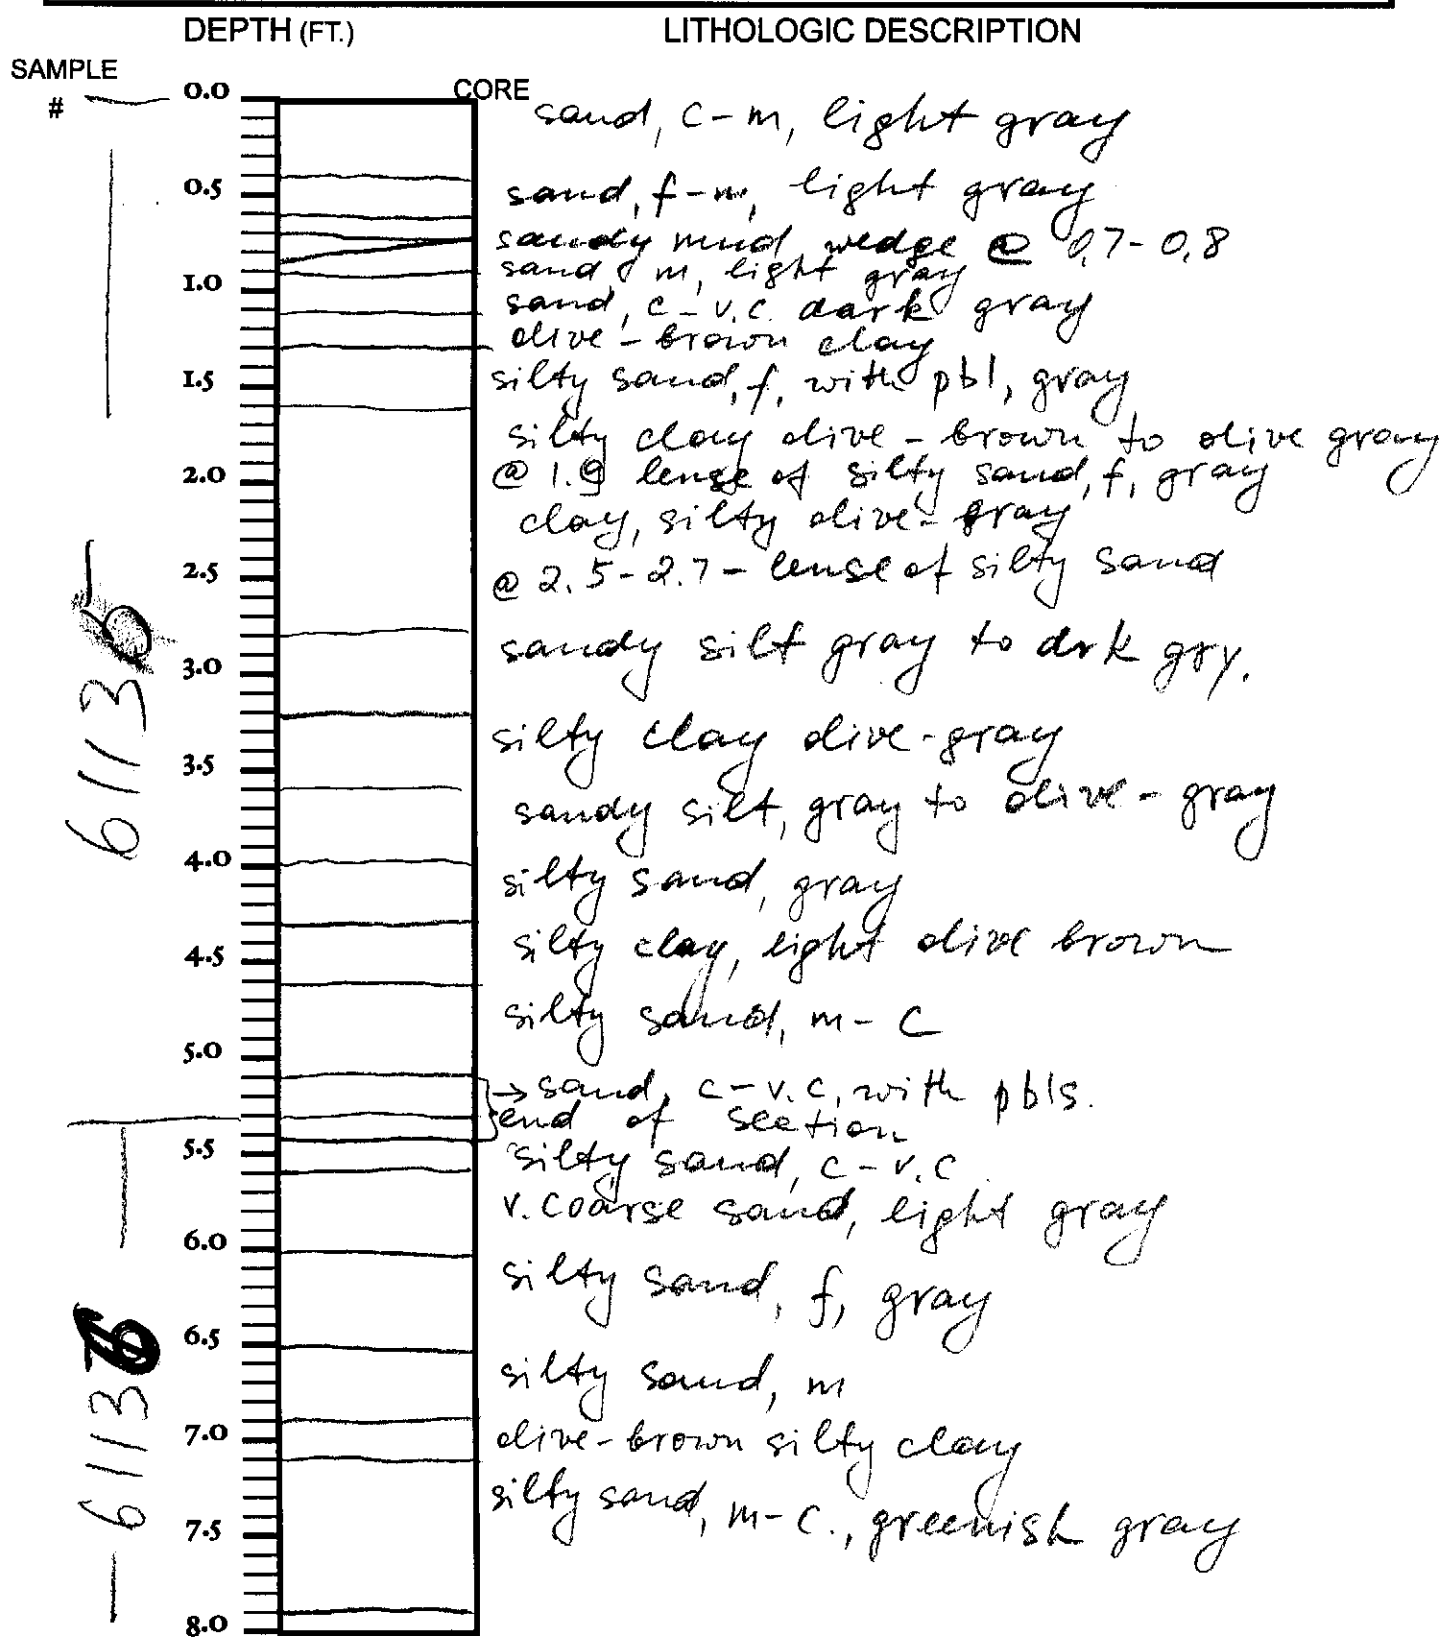 DEPTH (FT.) LITHOLOGIC DESCRIPTION
SAMPLE
#
CORE
0.0
sand, c-m, light gray
0.5
sand, f-m, light gray
sandy mud wedge @ 0.7-0.8
sand, m, light gray
1.0
sand, c-v.c. dark gray
olive-brown clay
1.5
silty sand, f, with pbl, gray
silty clay olive-brown to olive gray
2.0
@ 1.9 lense of silty sand, f, gray
clay, silty olive-gray
2.5
@ 2.5-2.7 - lense of silty sand
sandy silt gray to drk gry.
3.0
silty clay olive-gray
3.5
sandy silt, gray to olive-gray
4.0
silty sand, gray
4.5
silty clay, light olive brown
silty sand, m-c
5.0
→ sand, c-v.c, with pbls.
end of section
5.5
silty sand, c-v.c
v. coarse sand, light gray
6.0
silty sand, f, gray
6.5
silty sand, m
7.0
olive-brown silty clay
silty sand, m-c., greenish gray
7.5
8.0
61135
61136